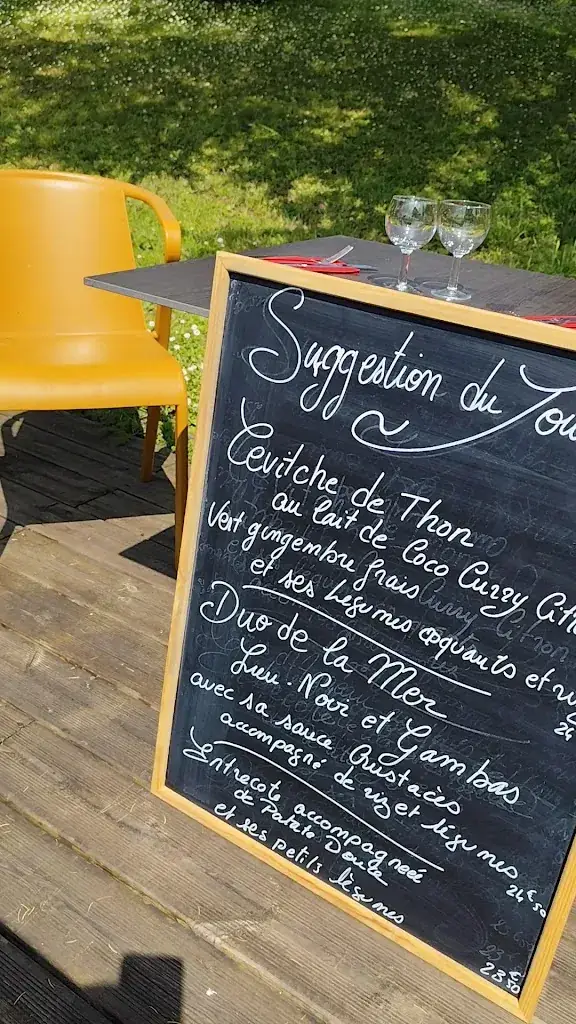 Suggestion du Jou
Cevitche de Thon
au lait de Coco Curry Cit
Vert gingembre frais
et ses légumes croquants et
24
Duo de la Mer
Lieu-Noir et Gambas
avec sa sauce Crustacés
accompagné de riz et légumes
24€50
Entrecote accompagneé
de Patate Douce
et ses petits légumes
23€50